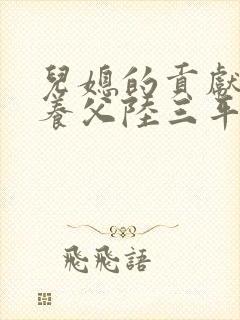 兒媳的貢獻
養父陸三年
飛飛語